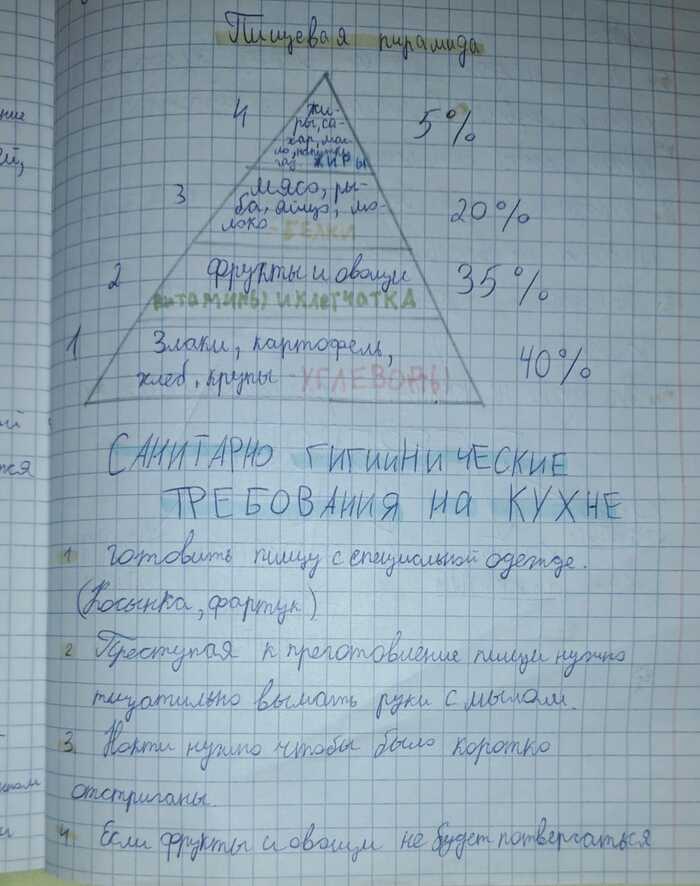 Пищевая пирамида
4 жи-
ры, са- 5%
хар, мас-
ло, напитки
газ. ЖИРЫ
3 мясо, ры-
ба, яйцо, мо- 20%
локо - БЕЛКИ
2 фрукты и овощи 35%
витамины и клетчатка
1 Злаки, картофель,
хлеб, крупы - УГЛЕВОДЫ 40%
САНИТАРНО ГИГИИНИЧЕСКИЕ
ТРЕБОВАНИЯ НА КУХНЕ
1 готовить пищу с специальной одежде.
(Косынка, фартук)
2 Преступая к преготовление пищи нужно
тщатильно вымать руки с мылом.
3. Ногти нужно чтобы было коротко
отстриганы.
4. Если фрукты и овощи не будет потвергаться